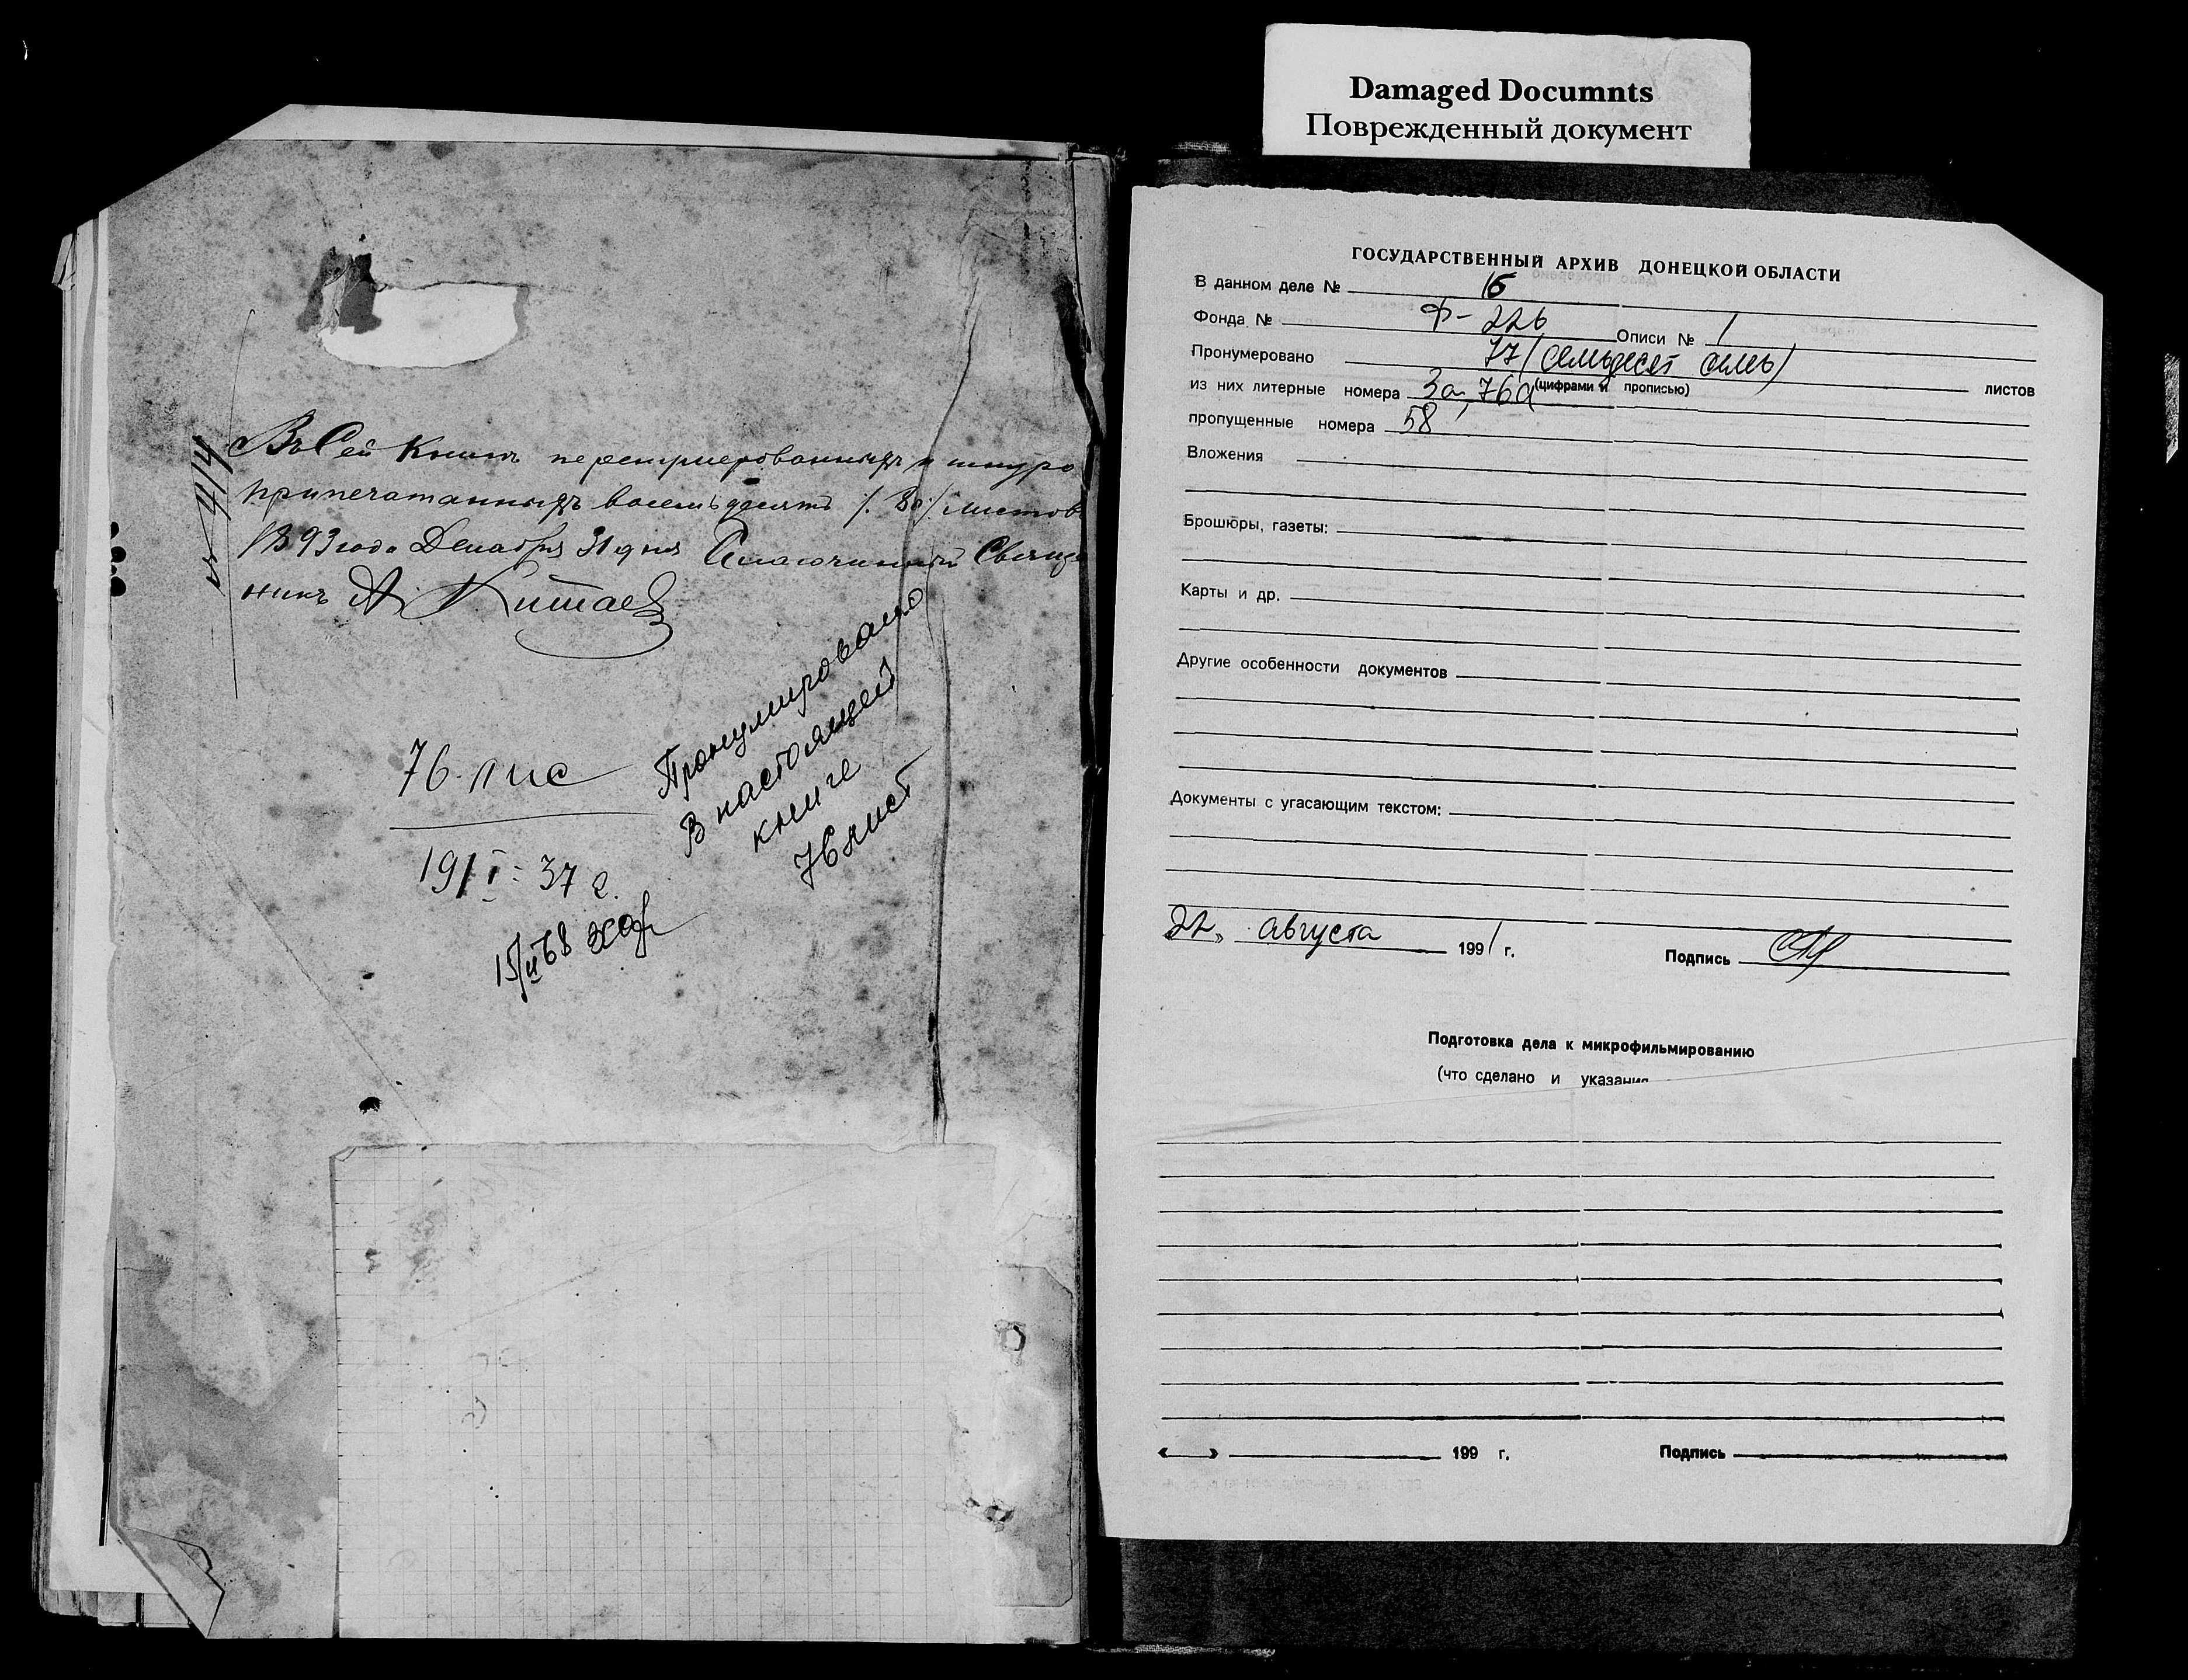 Damaged Documnts
Поврежденный документ
№ 414
Въ Сей Книгѣ перенумерованныхъ и шнуро
припечатанныхъ восемьдесятъ /. 80 / листовъ
1893 года Декабря 31 дня Благочинный Священ
никъ А. Китаев
76 лис
19/I - 37 г.
15/II 68
Пронумировано
В настоящей
книге
76 лист
ГОСУДАРСТВЕННЫЙ АРХИВ ДОНЕЦКОЙ ОБЛАСТИ
В данном деле № 16
Фонда № Ф-226 Описи № 1
Пронумеровано 77 (семьдесят семь) листов
(цифрами и прописью)
из них литерные номера 3а, 76а
пропущенные номера 58
Вложения
Брошюры, газеты:
Карты и др.
Другие особенности документов
Документы с угасающим текстом:
22» августа 1991 г. Подпись
Подготовка дела к микрофильмированию
(что сделано и указания
« » 199 г. Подпись